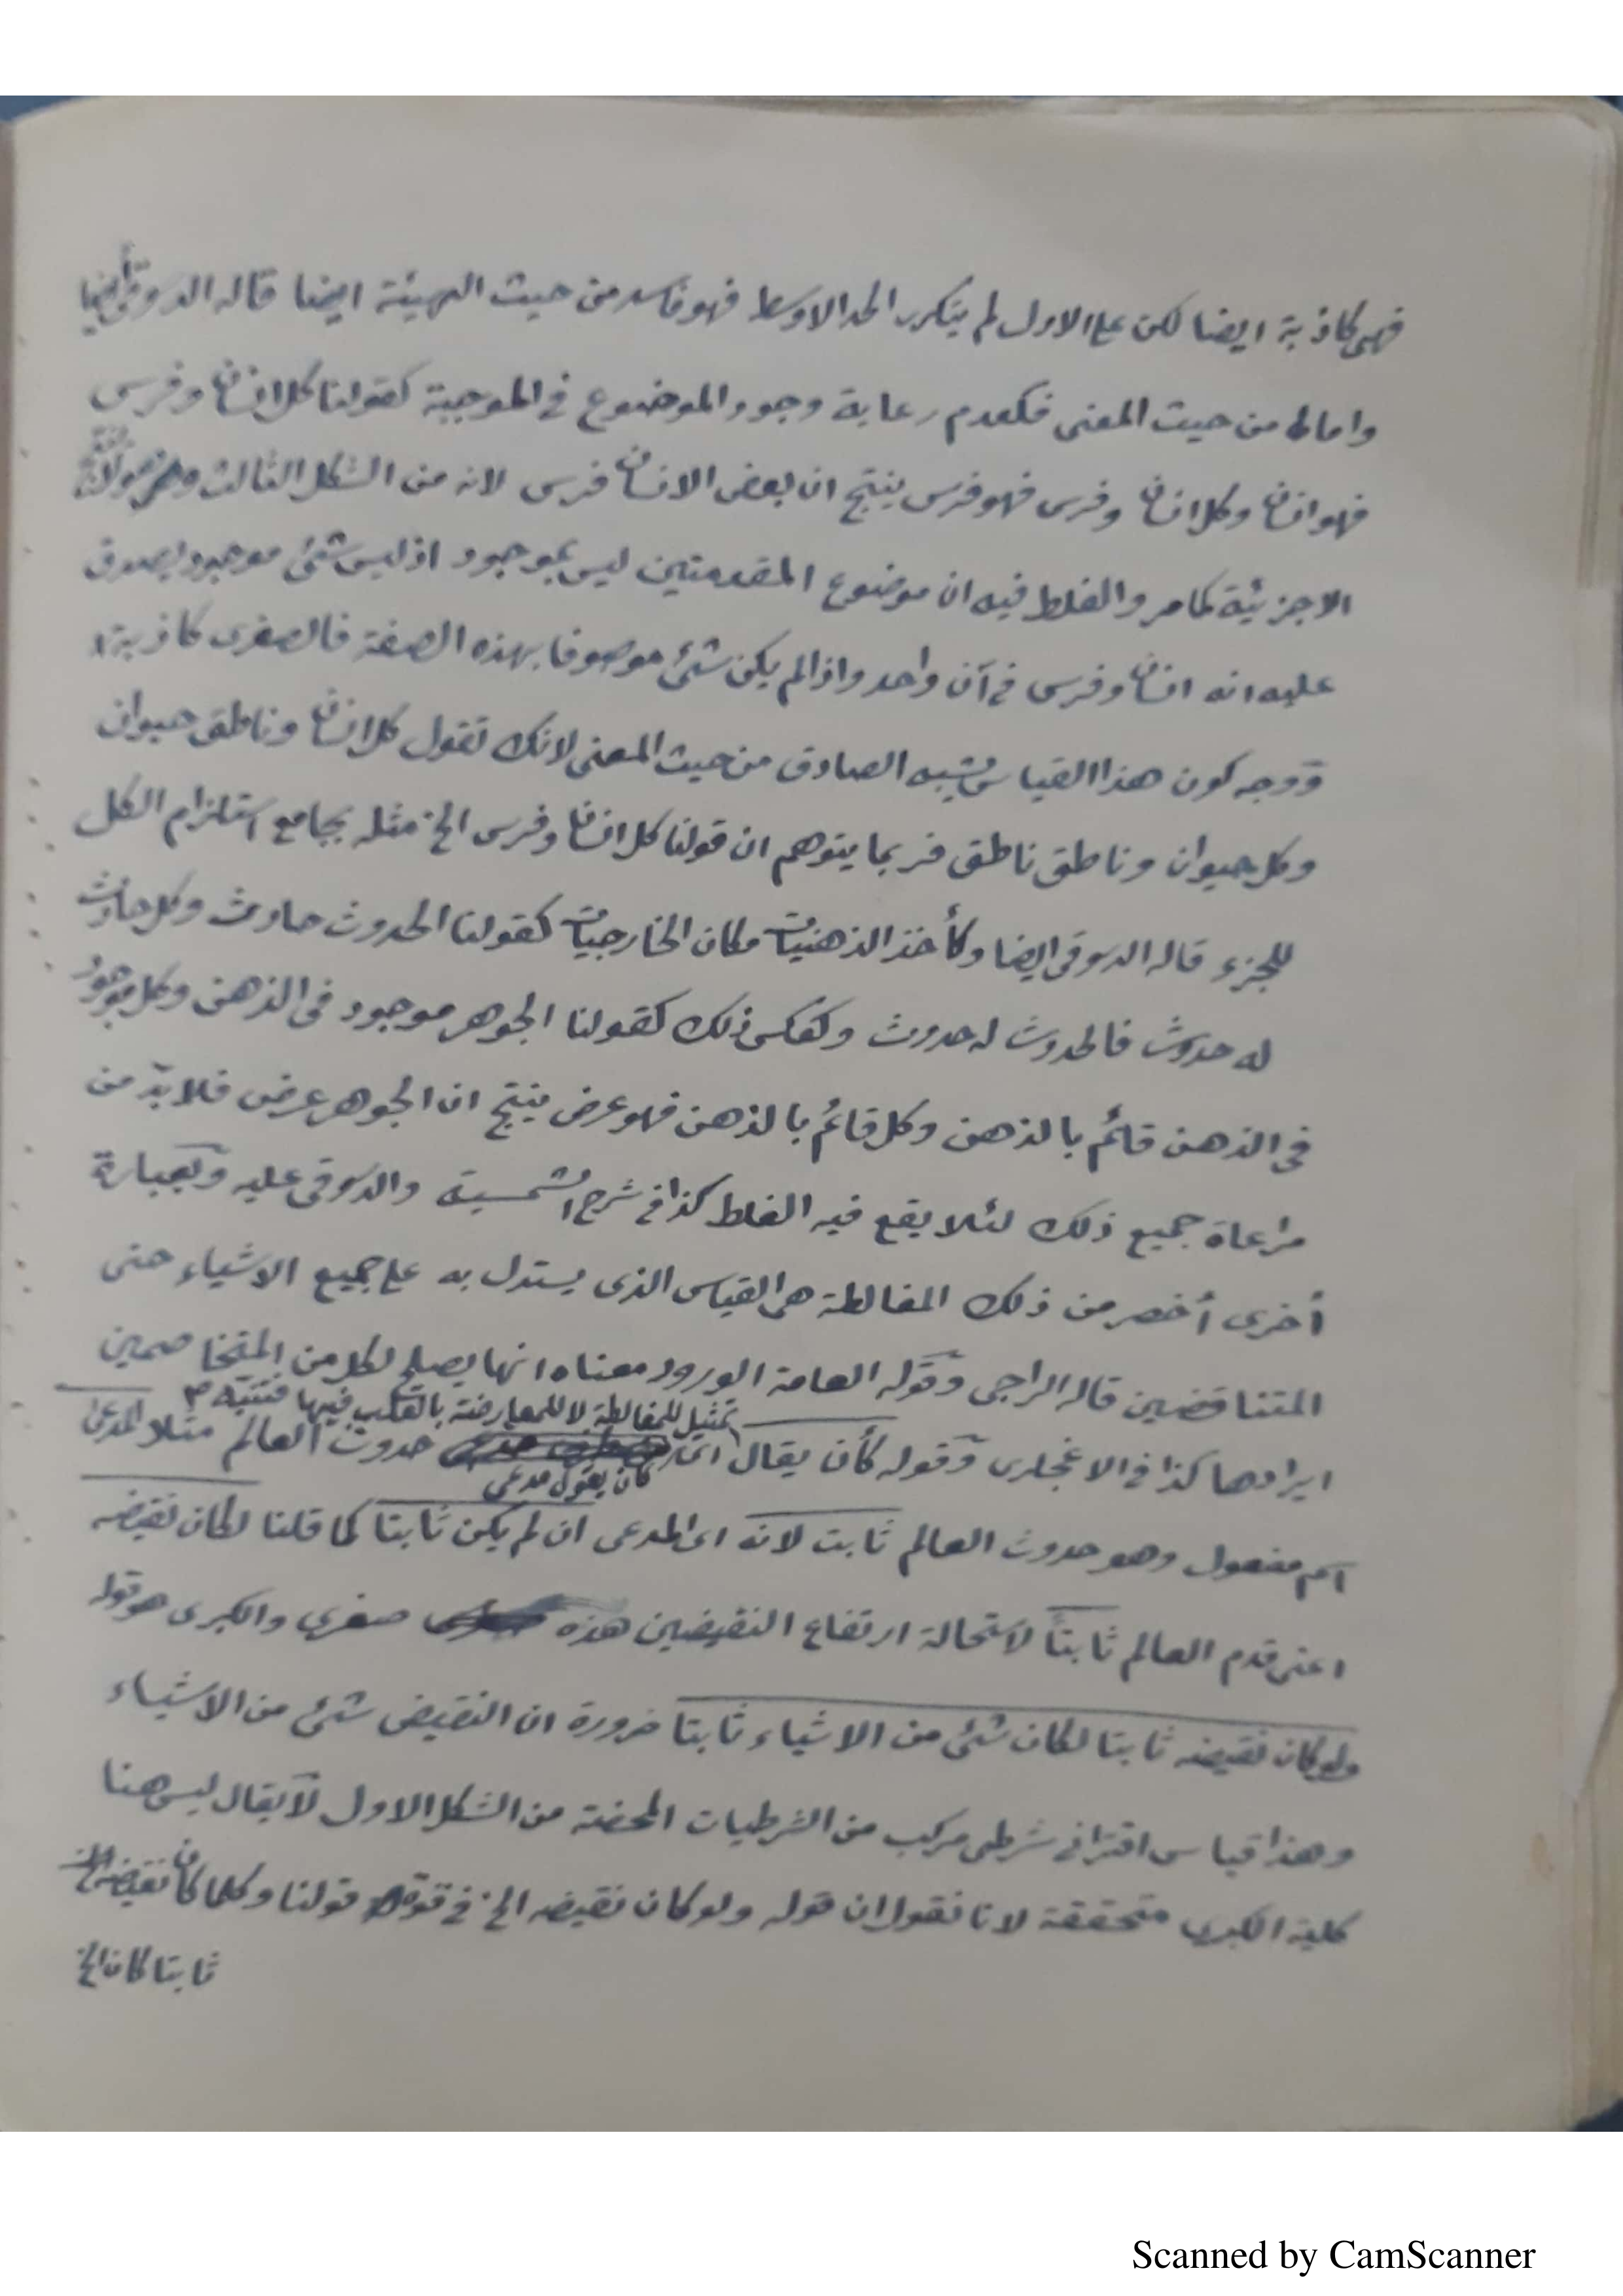 فهى كاذبة ايضا لكن على الاول لم يتكرر الحد الاوسط فهو فاسد من حيث الهيئة ايضا قاله الدسوقى أيضا
واما من حيث المعنى فكعدم رعاية وجود الموضوع فى الموجبة كقولنا كل انسان وفرس
فهو انسان وكل انسان وفرس فهو فرس ينتج ان بعض الانسان فرس لانه من الشكل الثالث وهو
الا جزئية كما مر والغلط فيه ان موضوع المقدمتين ليس بموجود اذ ليس شئ موجود يصدق
عليه انه انسان وفرس فى آن واحد واذا لم يكن شئ موصوفا بهذه الصفة فالصغرى كاذبة
ووجه كون هذا القياس يشبه الصادق من حيث المعنى لانك تقول كل انسان وناطق حيوان
وكل حيوان وناطق ناطق فربما يتوهم ان قولنا كل انسان وفرس الخ مثله بجامع استلزام الكل
للجزء قاله الدسوقى ايضا وكأخذ الذهنيات مكان الخارجيات كقولنا الحدوث حادث وكل حادث
له حدوث فالحدوث له حدوث وكعكس ذلك كقولنا الجوهر موجود فى الذهن وكل موجود
فى الذهن قائم بالذهن وكل قائم بالذهن فهو عرض ينتج ان الجوهر عرض فلا بد من
مراعاة جميع ذلك لئلا يقع فيه الغلط كذا فى شرح الشمسية والدسوقى عليه وبعبارة
أخرى أخصر من ذلك المغالطة هى القياس الذى يستدل به على جميع الاشياء حتى
المتناقضين قاله الراجى وقوله العامة الورود معناه انها يصلح لكل من المتخاصمين
تمثيل للمغالطة لا للمعارضة بالقلب فيها فتنبه م
ايرادها كذا فى الاغجلرى وقوله كأن يقال اى حدوث العالم مثلا المدعى
كان يقول مدعى
اسم مفعول وهو حدوث العالم ثابت لانه اى المدعى ان لم يكن ثابتا كما قلنا لكان نقيضه
اعنى قدم العالم ثابتا لاستحالة ارتفاع النقيضين هذه صغرى والكبرى هو قوله
ولو كان نقيضه ثابتا لكان شئ من الاشياء ثابتا ضرورة ان النقيض شئ من الاشياء
وهذا قياس اقترانى شرطى مركب من الشرطيات المحضة من الشكل الاول لا يقال ليس هنا
كلية الكبرى متحققة لانا نقول ان قوله ولو كان نقيضه الخ فى قوة قولنا وكلما كان نقيضه
ثابتا كان الخ